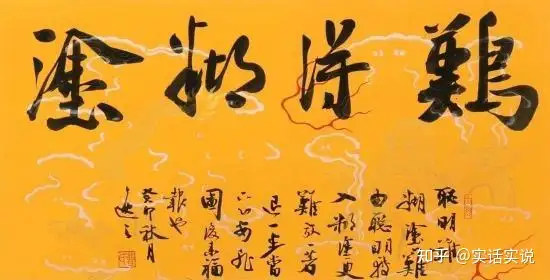 難得糊塗
聪明難
糊塗難
由聪明转
入糊塗更
難放一著
退一步当
下心安非
圖後来福
報也
癸卯秋月
知乎 @实话实说